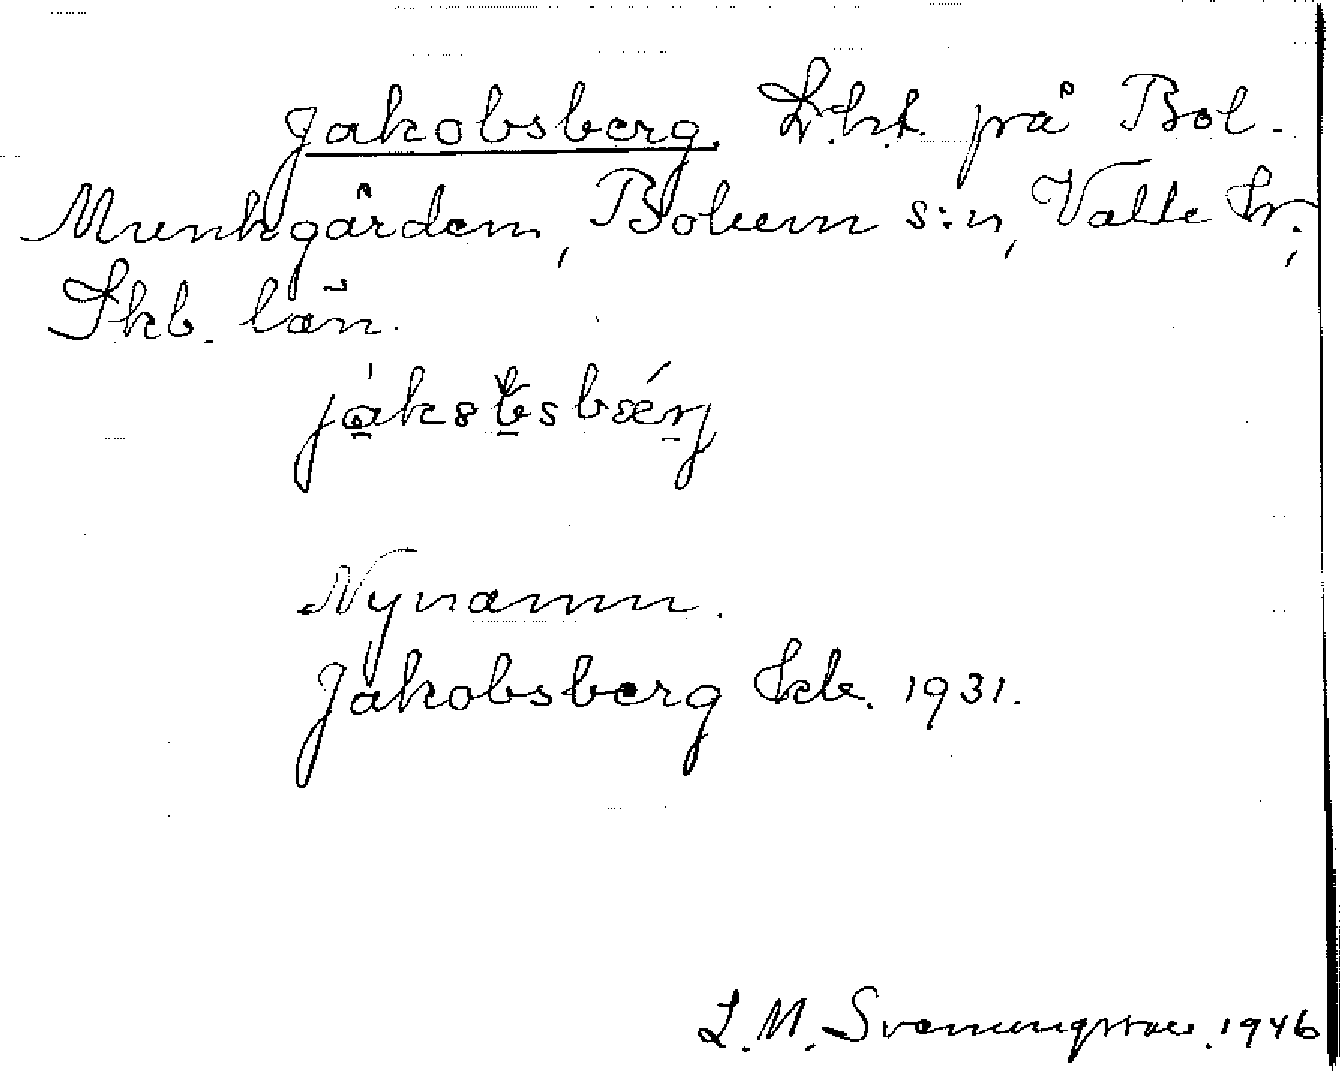 Jakobsberg. Lht. på Bol-
Munkgården, Bolum s:n, Valle hr.,
Skb. län.
Nynamn.
Jakobsberg Jb. 1931.
L.M. Svenungsson. 1946